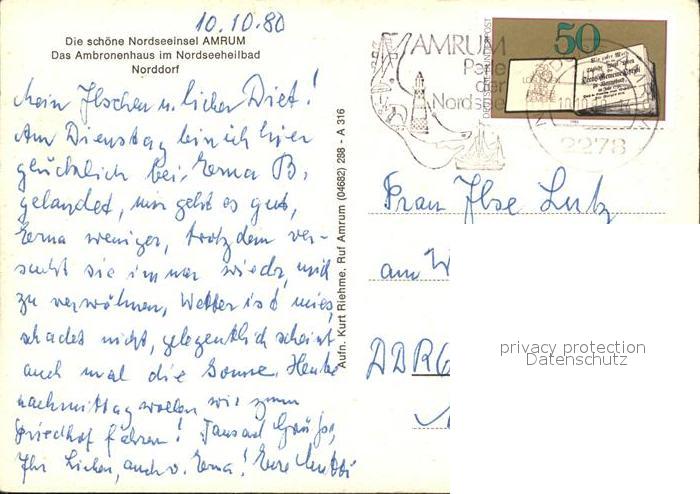 10.10.80
Die schöne Nordseeinsel AMRUM
Das Ambronenhaus im Nordseeheilbad
Norddorf
Mein Ilschen u. lieber Diet!
Am Dienstag bin ich hier
glücklich bei Erna B,
gelandet, mir geht es gut,
Erna weniger, trotzdem ver-
sucht sie immer wieder, mich
zu verwöhnen, Wetter ist mies,
schadet nicht, gelegentlich scheint
auch mal die Sonne. Heute
nachmittag wollen wir zum
Friedhof fahren! Tausend Grüße,
Ihr Lieben, auch v. Erna! Eure
Aufn. Kurt Riehme. Ruf Amrum (04682) 288 - A 316
AMRUM
Perle
der
Nordsee
DEUTSCHE BUNDESPOST
50
10.10.80
2278
Frau Ilse Lutz
am W
DDR 6
privacy protection
Datenschutz